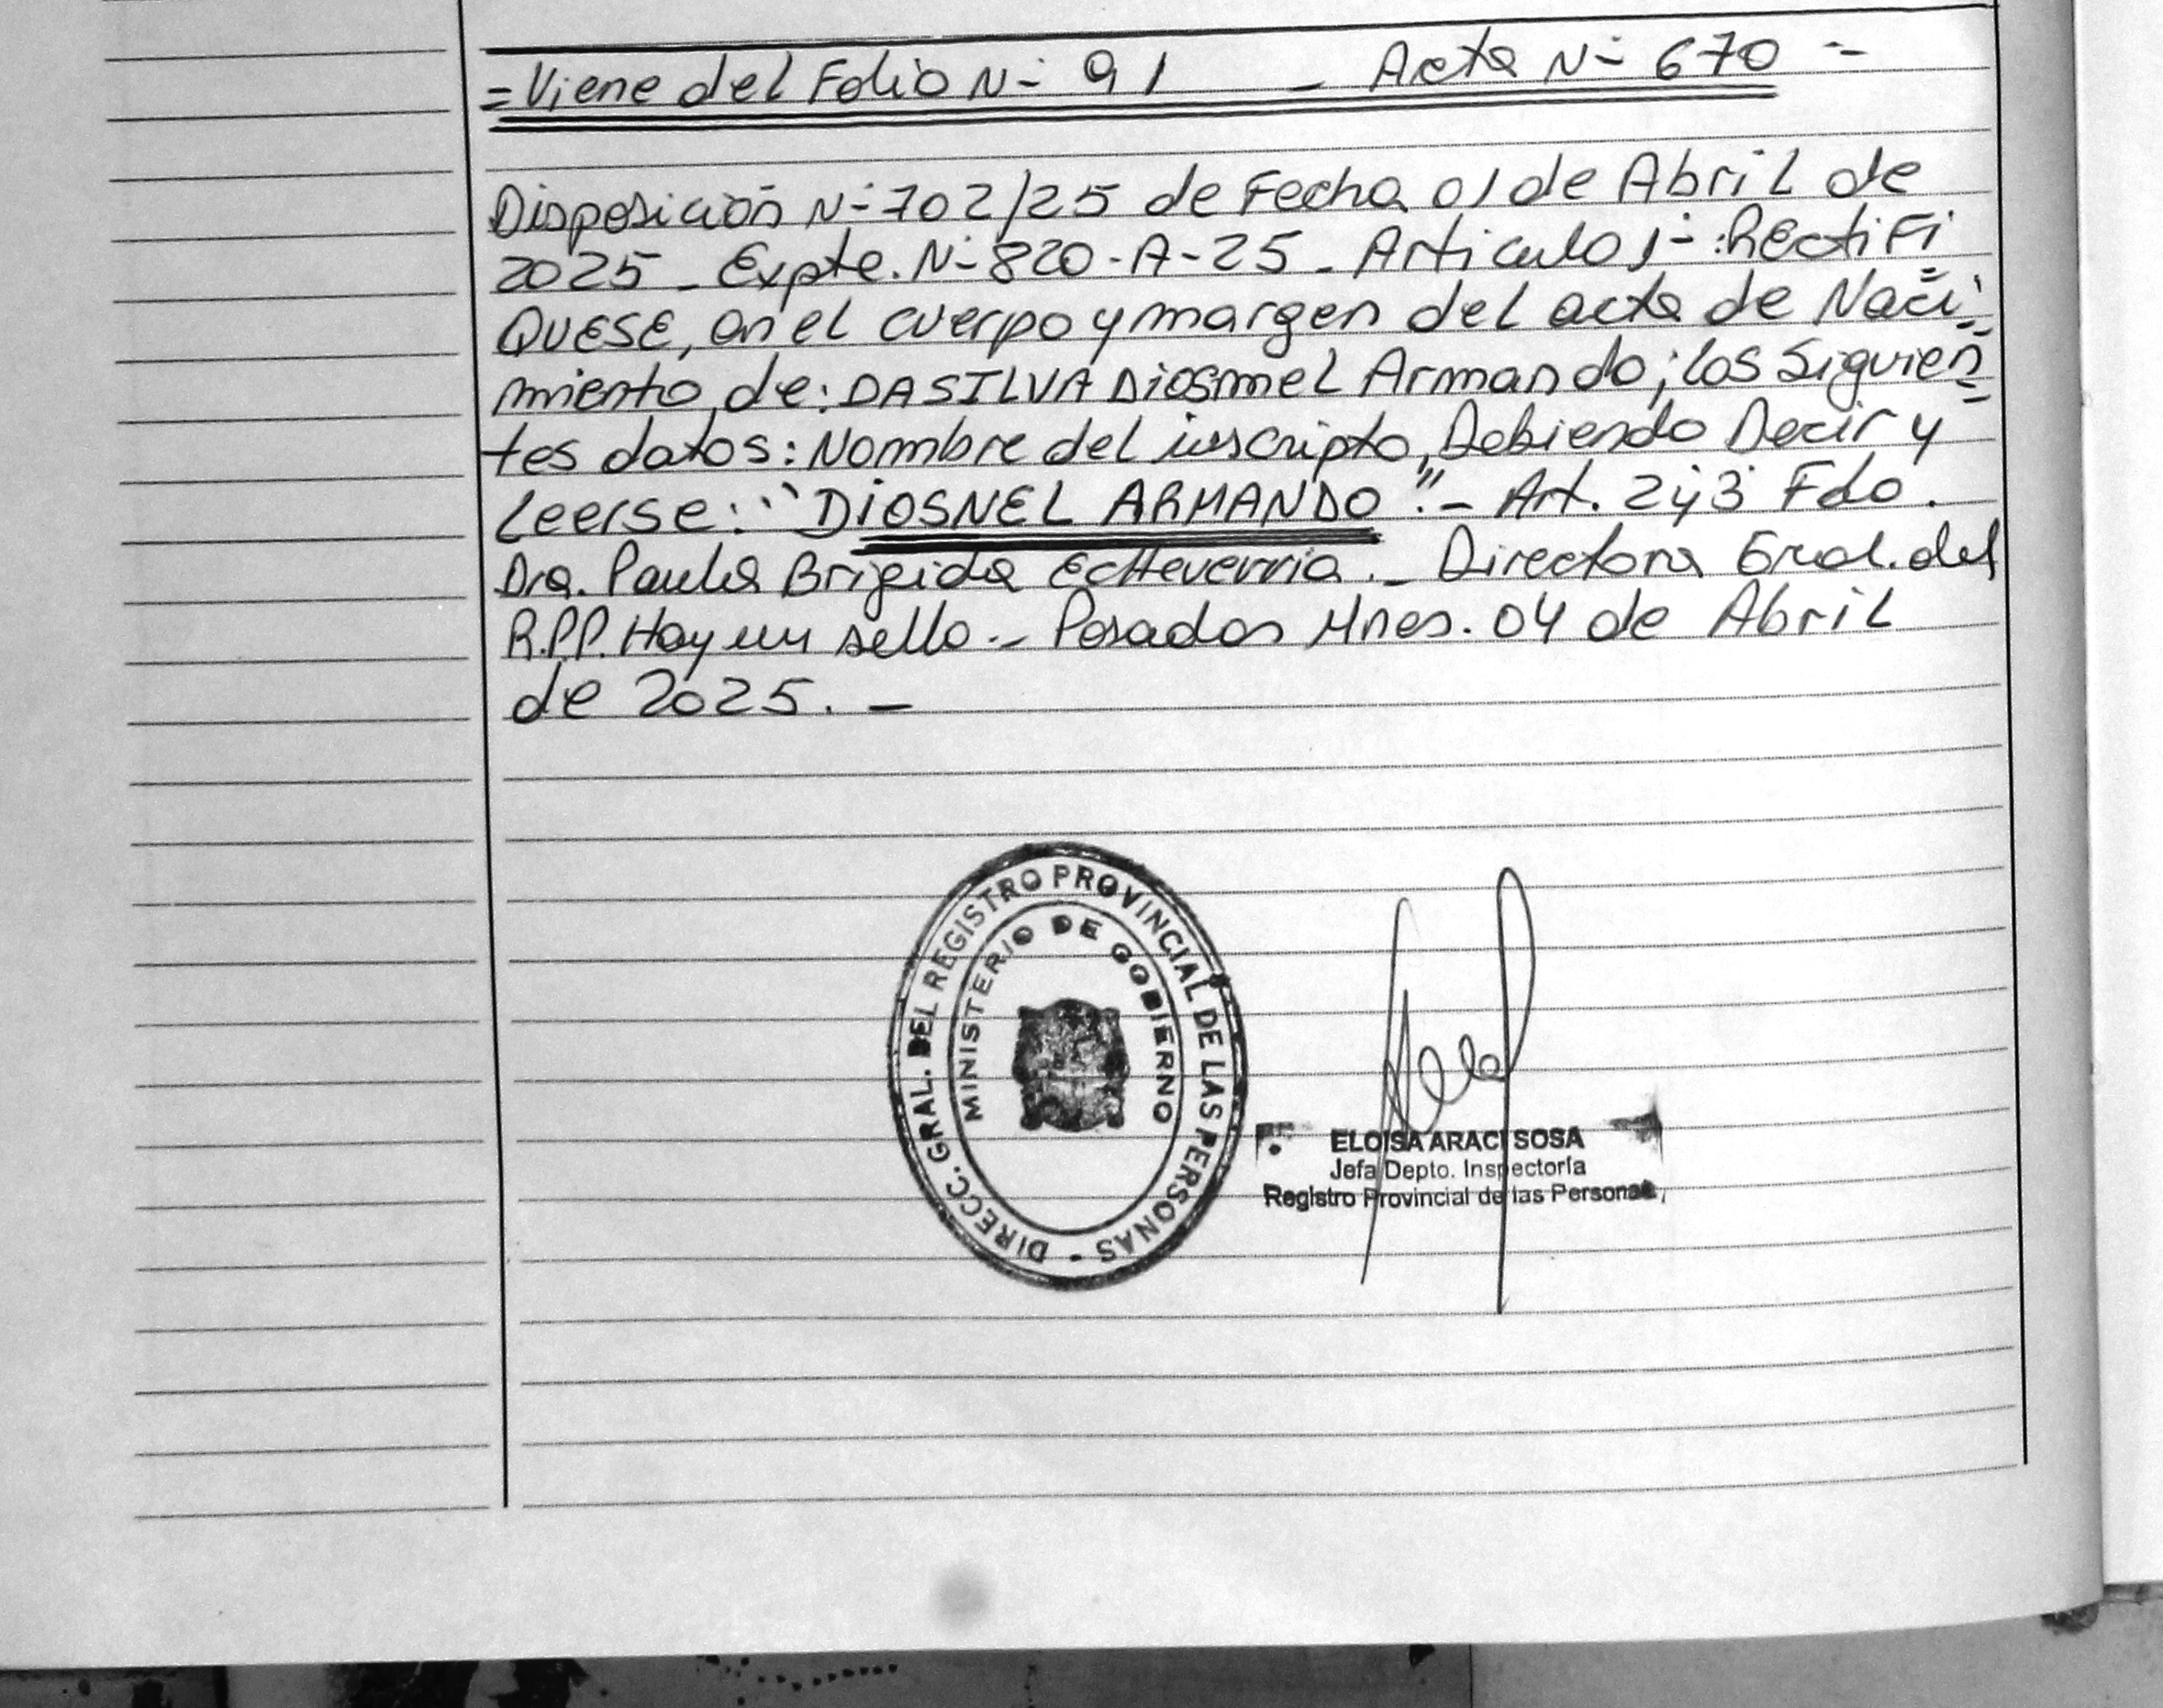 =Viene del Folio N- 91 - Acta N- 670 -
Disposición N- 702/25 de Fecha 01 de Abril de
2025 - Expte. N- 820-A-25 - Articulo 1-: Rectifi
QUESE, en el cuerpo y margen del acta de Naci
miento, de: DASILVA Diosmel Armando; los Siguien
tes datos: Nombre del inscripto, Debiendo Decir y
Leerse: "DIOSNEL ARMANDO".- Art. 2y3 Fdo.
Dra. Paula Brigida Echeverria.- Directora Gral. del
R.P.P. Hay un sello.- Posadas Mnes. 04 de Abril
de 2025. -
DIRECC. GRAL. DEL REGISTRO PROVINCIAL DE LAS PERSONAS -
MINISTERIO DE GOBIERNO
ELOISA ARACI SOSA
Jefa Depto. Inspectoría
Registro Provincial de las Personas